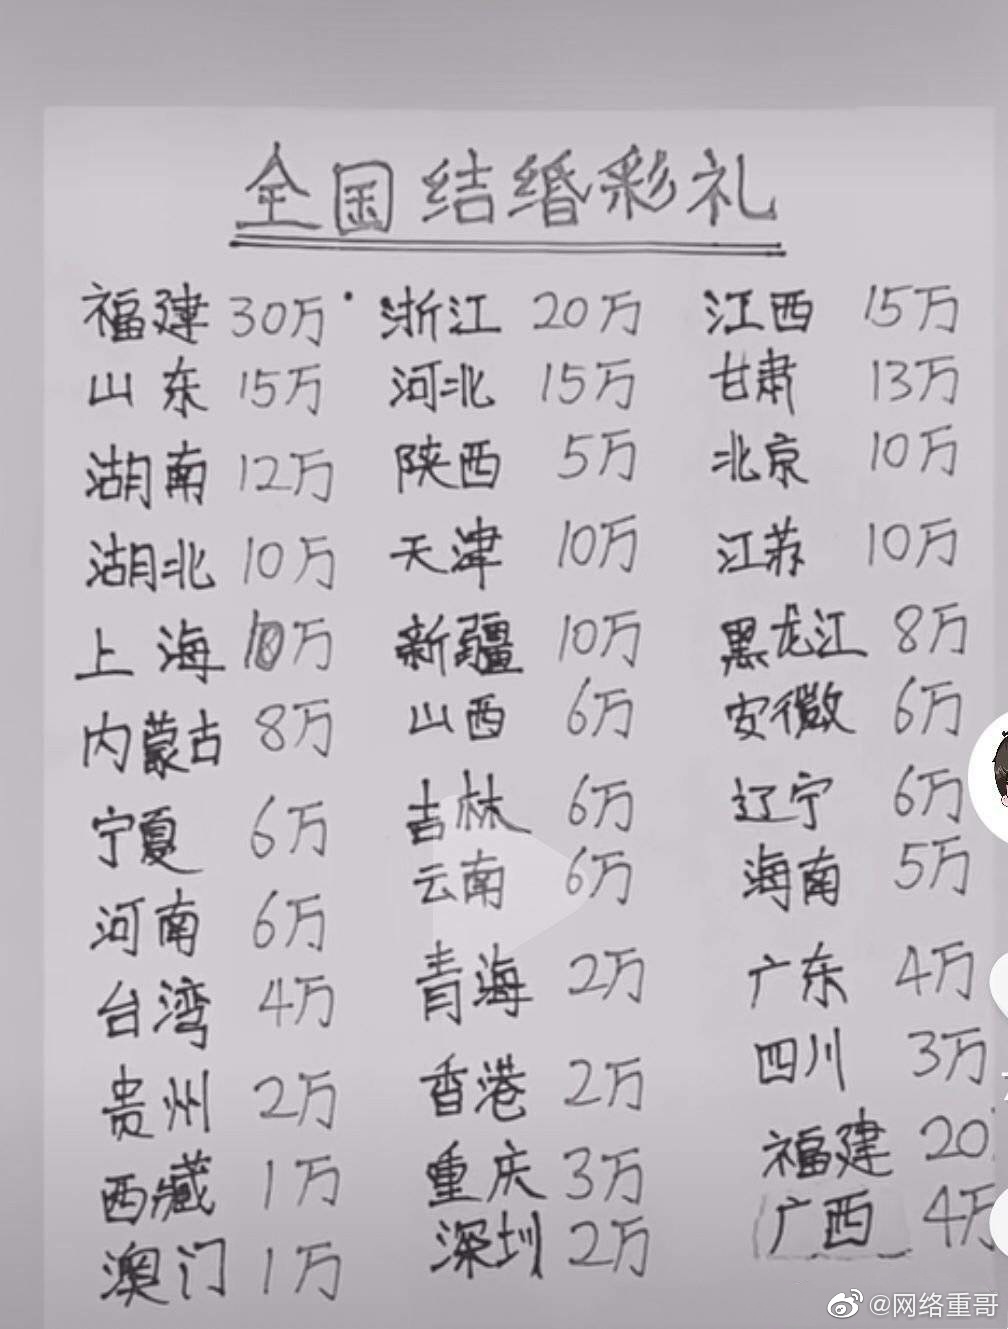 全国结婚彩礼
福建 30万 浙江 20万 江西 15万
山东 15万 河北 15万 甘肃 13万
湖南 12万 陕西 5万 北京 10万
湖北 10万 天津 10万 江苏 10万
上海 10万 新疆 10万 黑龙江 8万
内蒙古 8万 山西 6万 安徽 6万
宁夏 6万 吉林 6万 辽宁 6万
河南 6万 云南 6万 海南 5万
台湾 4万 青海 2万 广东 4万
贵州 2万 香港 2万 四川 3万
西藏 1万 重庆 3万 福建 20
澳门 1万 深圳 2万 广西 4万
@网络重哥